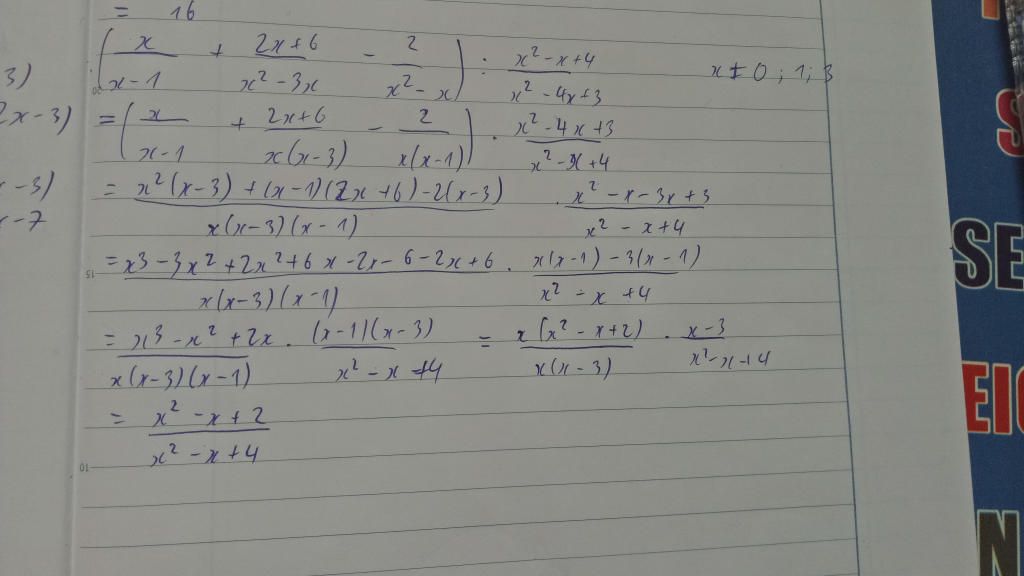 = 16
3)
( x/(x-1) + (2x+6)/(x²-3x) - 2/(x²-x) ) : (x²-x+4)/(x²-4x+3) x ≠ 0 ; 1 ; 3
2x-3)
= ( x/(x-1) + (2x+6)/(x(x-3)) - 2/(x(x-1)) ) · (x²-4x+3)/(x²-x+4)
-3)
= (x²(x-3) + (x-1)(2x+6) - 2(x-3))/(x(x-3)(x-1)) · (x²-x-3x+3)/(x²-x+4)
-7
= (x³-3x²+2x²+6x-2x-6-2x+6)/(x(x-3)(x-1)) · (x(x-1)-3(x-1))/(x²-x+4)
15
= (x³-x²+2x)/(x(x-3)(x-1)) · ((x-1)(x-3))/(x²-x+4) = (x(x²-x+2))/(x(x-3)) · (x-3)/(x²-x+4)
= (x²-x+2)/(x²-x+4)
10
S
SE
EI
N